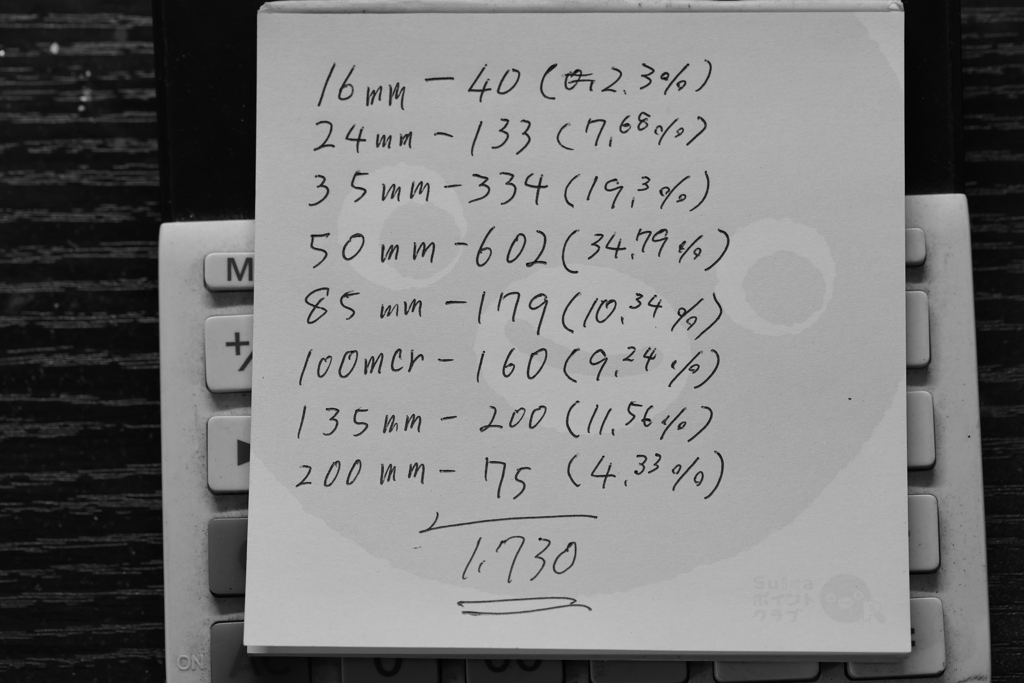 16mm - 40 (2.3%)
24mm - 133 (7.68%)
35mm - 334 (19.3%)
50mm - 602 (34.79%)
85mm - 179 (10.34%)
100mcr - 160 (9.24%)
135mm - 200 (11.56%)
200mm - 75 (4.33%)
1,730
Suica
ポイント
クラブ
M
+/
ON